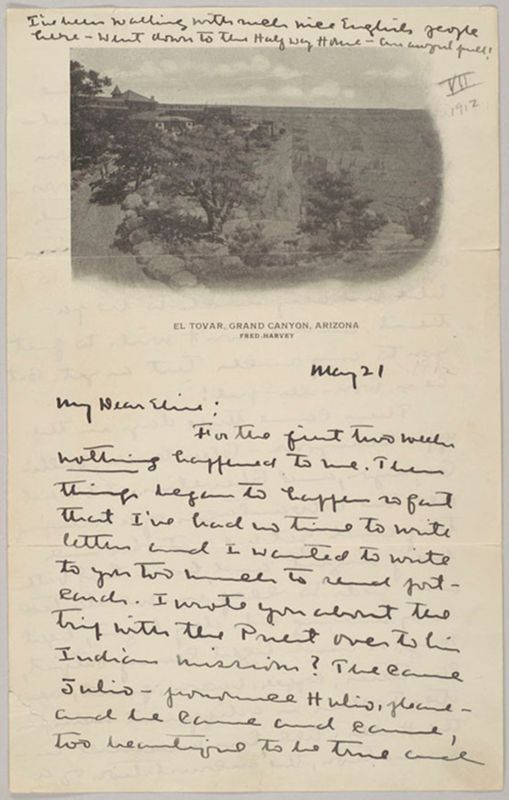 I've been walking with such nice English people
here – Went down to the Half Way House – an awful pull!
VII
1912
EL TOVAR, GRAND CANYON, ARIZONA
FRED HARVEY
May 21
My Dear Elsie;
For the first two weeks
nothing happened to me. Then
things began to happen so fast
that I've had no time to write
letters and I wanted to write
to you too much to send post-
cards. I wrote you about the
trip with the Priest over to his
Indian missions? Then came
Julio – pronounce Hulio, please –
and he came and came,
too beautiful to be true and